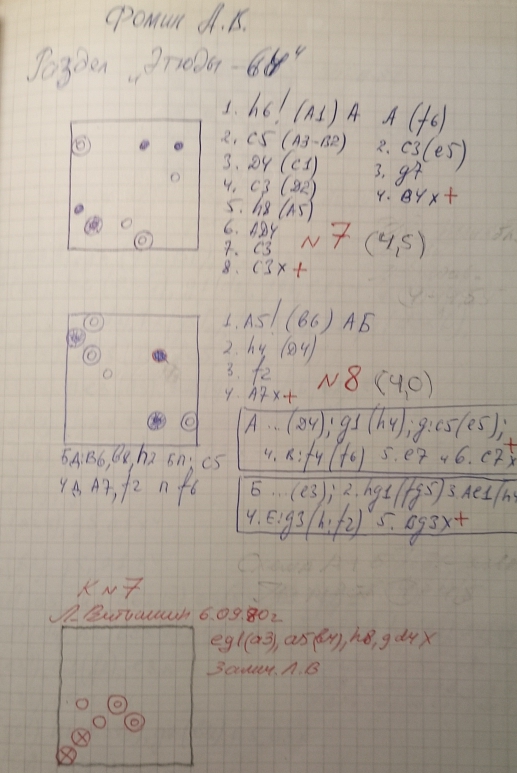 Фомин А.В.
Раздел „Этюды-64"
1. h6! (A1) A
2. C5 (A3-B2)
3. D4 (C1)
4. C3 (D2)
5. h8 (A5)
6. AD4
7. C3
8. C3x+
A (f6)
2. C3(e5)
3. g7
4. B4x+
N7 (4,5)
1. A5! (B6) AБ
2. h4 (D4)
3. f2
4. A7x+
N8 (4,0)
А ... (D4); g1(h4); g:c5(e5);
4. B:f4(f6) 5. e7 ч 6. C7x+
Б ... (e3); 2. hg1(fg5) 3. Ae1(h4
4. E:g3(h:f2) 5. Bg3x+
БД:B6, b8, h2 БП: C5
ЧД A7, f2 п f6
К N7
6.09.80г
eg1(a3), a5(b4), h8, gd4x